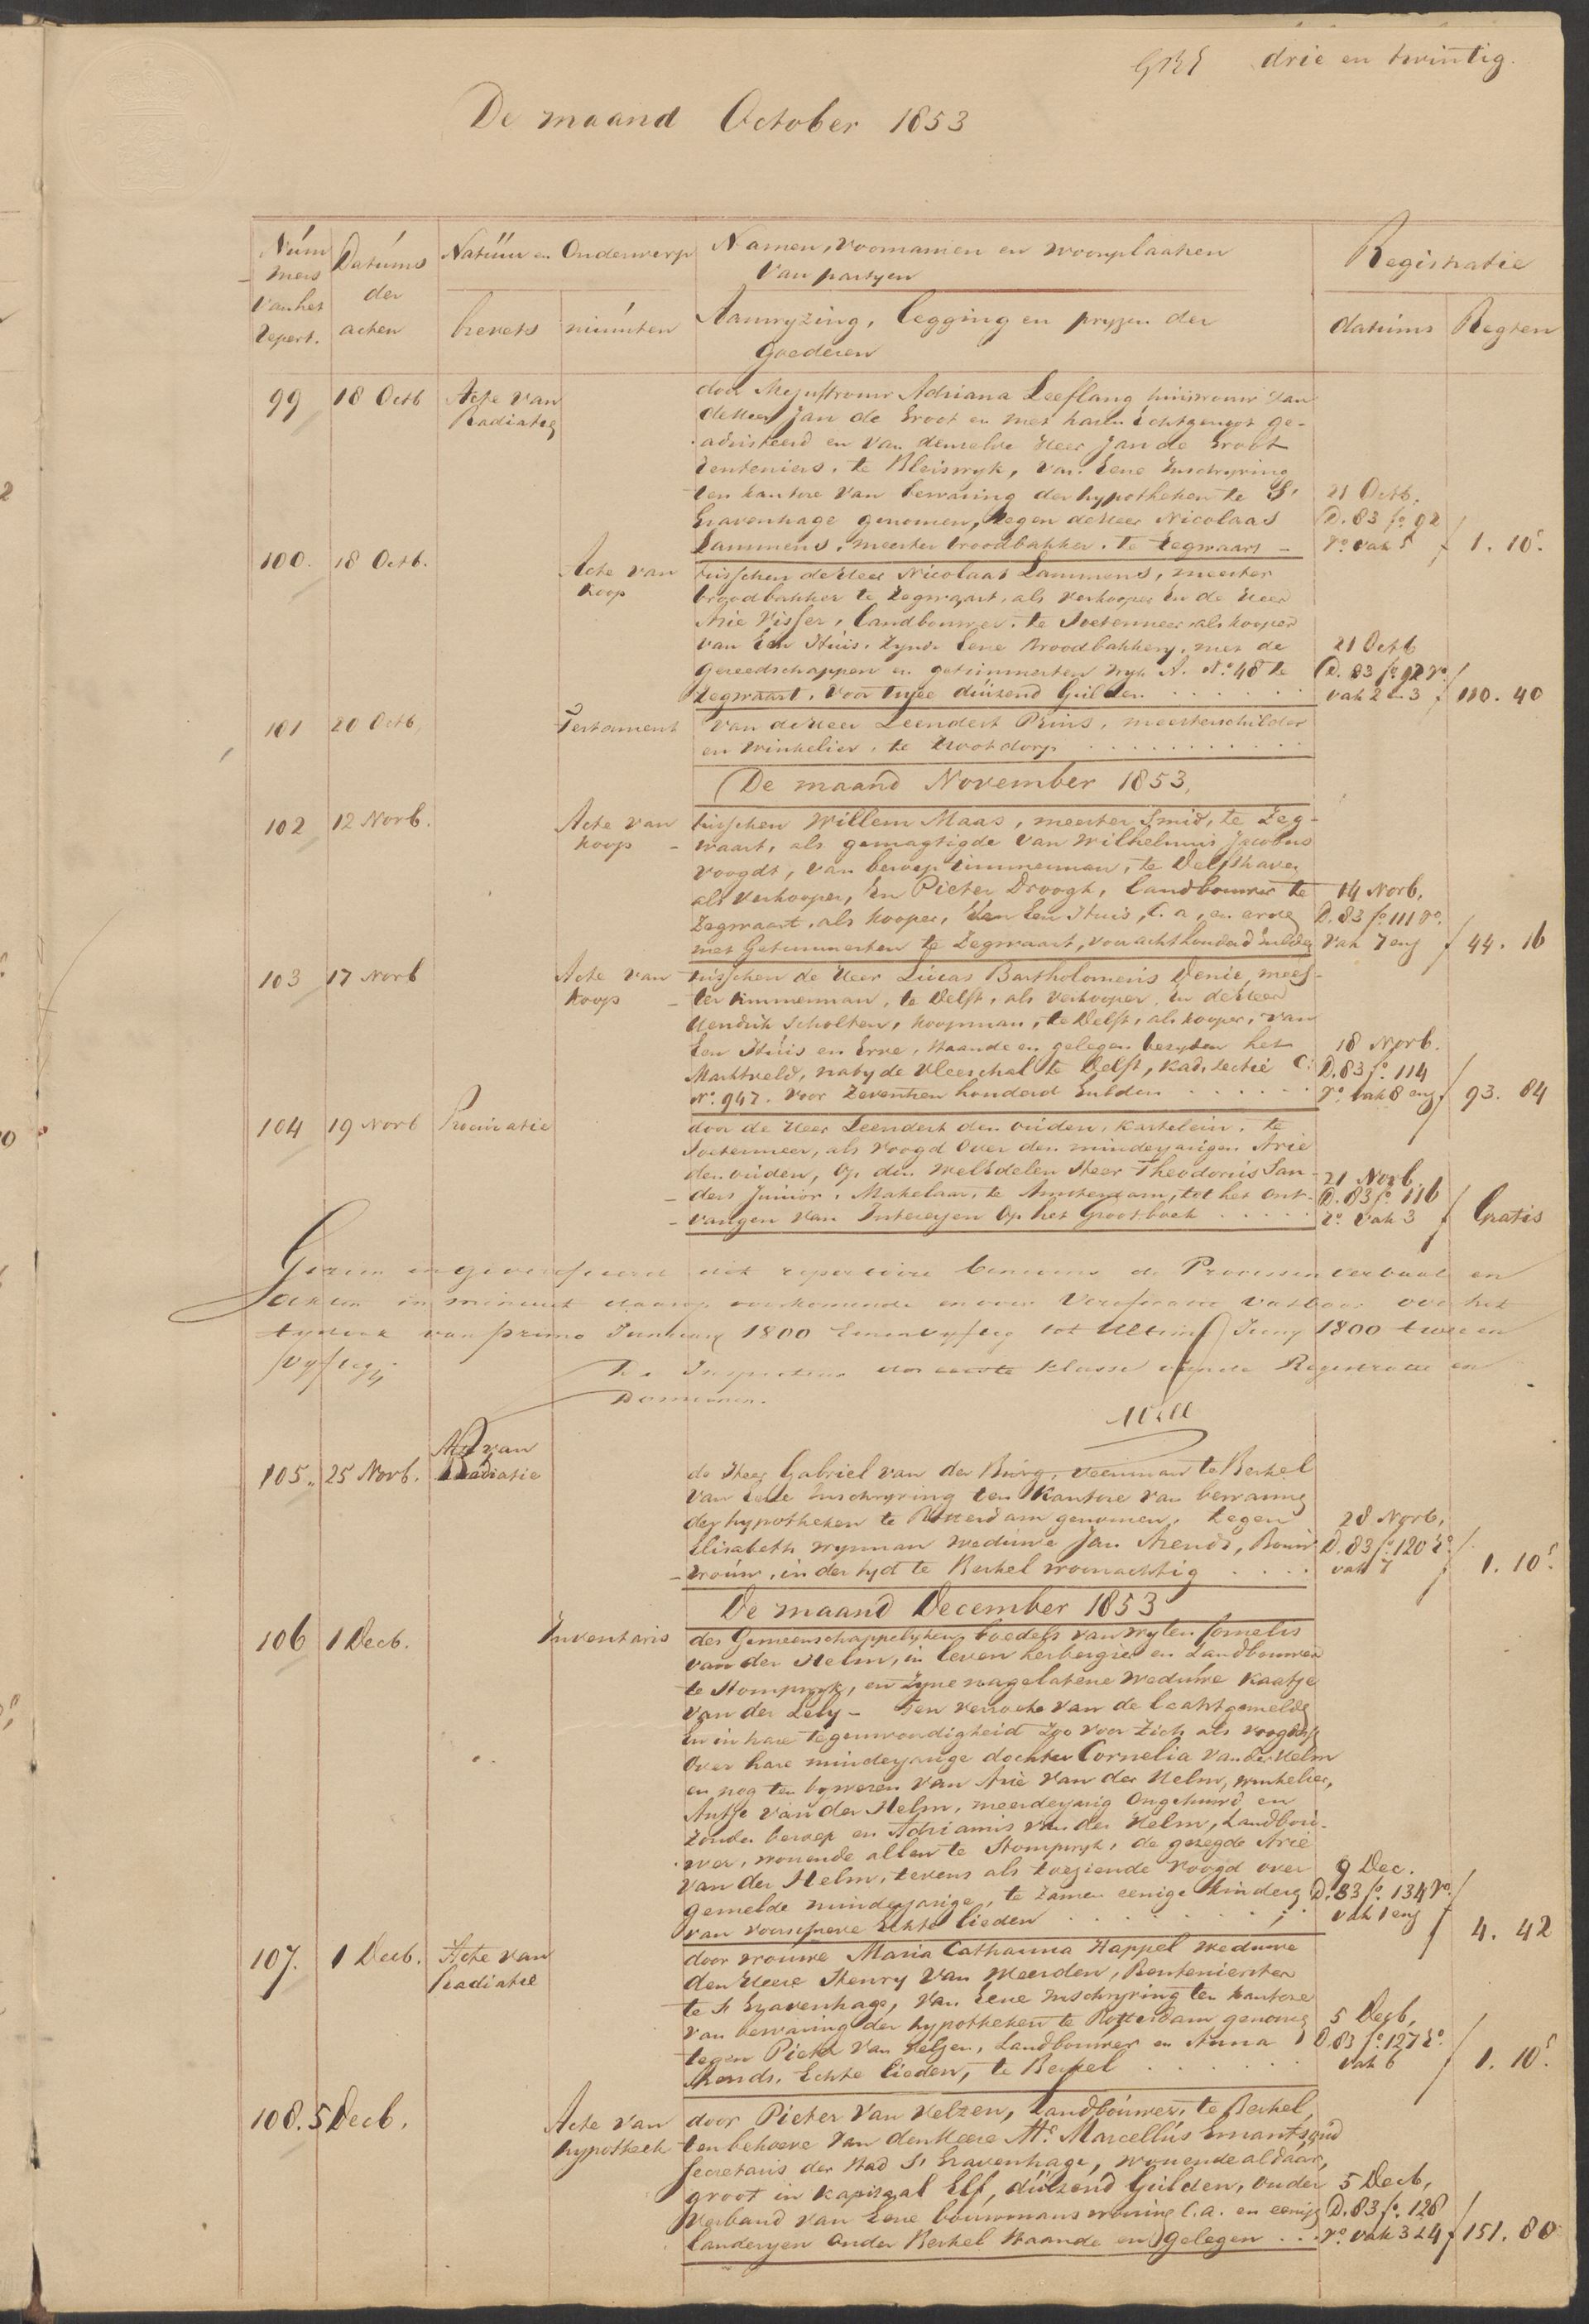 drie en twintig.
De maand October 1853
Num
mers
van het
Repert.
Datums
der
acten
Natuur en Onderwerp
brevets
minuten
Namen, voornamen en woonplaatsen
van partyen
Aanwyzing, legging en pryzen der
Goederen
Registratie
datums
Regten
99
18 Octb
Acte van
Radiatie
door Mejuffrouw Adriana Leeflang huisvrouw van
de Heer Jan de Groot en met haren Echtgenoot ge-
adsisteerd en van denzelve Heer Jan de Groot
renteniers, te Bleiswyk, van Eene Inschryving
ten kantore van bewaring der hypotheken te S'
Gravenhage genomen, tegen de Heer Nicolaas
Lammens, meester broodbakker te Zegwaart -
21 Octb.
D. 83 fo. 92
ro. vak 5
1. 10.
100.
18 Octb.
Acte van
koop
tusschen de Heer Nicolaas Lammens, meester
broodbakker te Zegwaart, als verkooper En de Heer
Arie Visser, Landbouwer, te Soetermeer als kooper
van Een Huis, zynde Eene Broodbakkery, met de
gereedschappen en getimmerten Wyk A. No. 48 te
Zegwaart, voor twee duizend Gulden . . . . .
21 Octb
D. 83 fo. 92 vo.
vak 2 en 3
110. 40
101
20 Octb.
Testament
van de Heer Leendert Prins, meesterschilder
en winkelier, te . . . . . . . . .
De maand November 1853.
102
12 Novb.
Acte van
koop -
tusschen Willem Maas, meester Smid, te Zeg-
waart, als gemagtigde van Wilhelmus Jacobus
Voogdt, van beroep timmerman, te Delfshaven
als verkooper, En Pieter Droogh, Landbouwer te
Zegwaart, als kooper, Van Een Huis, C. a, en erve
met Getimmerten te Zegwaart, voor achthonderd Gulden
14 Novb.
D. 83 fo. 111 vo.
vak 7 env
44. 16
103
17 Novb
Acte van
koop -
tusschen de Heer Lucas Bartholomeus Denie, mees-
ter timmerman, te Delft, als verkooper, En de Heer
Hendrik Scholten, koopman, te Delft, als kooper, van
Een Huis en Erve, staande en gelegen bezyden het
Marktveld, naby de Vleeschal te Delft, Kad. sectie C.
No. 947. voor Zeventien honderd Gulden . . . . .
18 Novb.
D. 83 fo. 114
vo. vak 8 env
93. 84
104
19 Novb
Procuratie
door de Heer Leendert den ouden, kastelein, te
Soetermeer, als voogd over den minderjarigen Arie
den ouden, op den Weledelen Heer Theodorus San-
- ders Junior, Makelaar, te Amsterdam, tot het ont-
- vangen van Interessen op het Grootboek . . . . .
21 Novb.
D. 83 fo. 116
ro. vak 3
Gratis
Gezien en geverifieerd dit repertoire benevens de Processen verbaal en
acten in minuut daarop voorkomende en voor Verificatie vatbaar over het
tydvak van primo January 1800 Eenenvyftig tot Ultimo Juny 1800 twee en
vyftig
De Inspecteur der eerste klasse van de Registratie en
Domeinen.
105.
25 Novb.
Acte van
Radiatie
de Heer Gabriel van der Burg, veenman te Berkel
van Eene Inschryving ten Kantore van bewaring
der hypotheken te Rotterdam genomen, tegen
Elisabeth Wynman weduwe Jan Arends, Bouw
- vrouw, in der tyd te Berkel woonachtig . . . .
28 Novb.
D. 83 fo. 120 ro
vak 7
1. 10.
De maand December 1853
106
1 Decb.
Inventaris
des Gemeenschappelyken boedels van wylen Cornelis
van der Helm, in leven herbergier en Landbouwer
te Stompwyk, en zyne nagelatene weduwe Kaatje
van der Lely - Ten verzoeke van de laatstgemelde
En in hare tegenwoordigheid zoo voor zich als voogdesse
over hare minderjarige dochter Cornelia van der Helm
en nog ten bywezen van Arie van der Helm, winkelier,
Antje van der Helm, meerderjarig ongehuwd en
zonder beroep en Adrianus van der Helm, Landbou-
wer, wonende allen te Stompwyk, de gezegde Arie
van der Helm, tevens als toeziende voogd over
gemelde minderjarige, te zamen eenige kinderen
van voorschreve Echte lieden . . . . .
9 Dec.
D. 83 fo. 134 vo.
vak 1 env
4. 42
107.
1 Decb.
Acte van
Radiatie
door vrouwe Maria Catharina Happel weduwe
den Heere Henry van Meerden, Rentenierster
te S Gravenhage, van Eene Inschryving ten kantore
van bewaring der hypotheken te Rotterdam genomen
tegen Pieter van Velzen, Landbouwer en Anna
Arends, Echte lieden, te Berkel . . . . .
5 Decb.
D. 83 fo. 127 ro
vak 6
1. 10.
108.
5 Decb.
Acte van
hypotheek
door Pieter van Velzen, Landbouwer, te Berkel,
ten behoeve van den Heere Mr. Marcellus Emants, oud
Secretaris der Stad S' Gravenhage, wonende aldaar,
groot in kapitaal Elf duizend Gulden, onder
Verband van Eene bouwmanswoning C. a. en eenige
Landeryen onder Berkel staande en gelegen . . .
5 Decb.
D. 83 fo. 128
vo. vak 3 & 4
151. 80